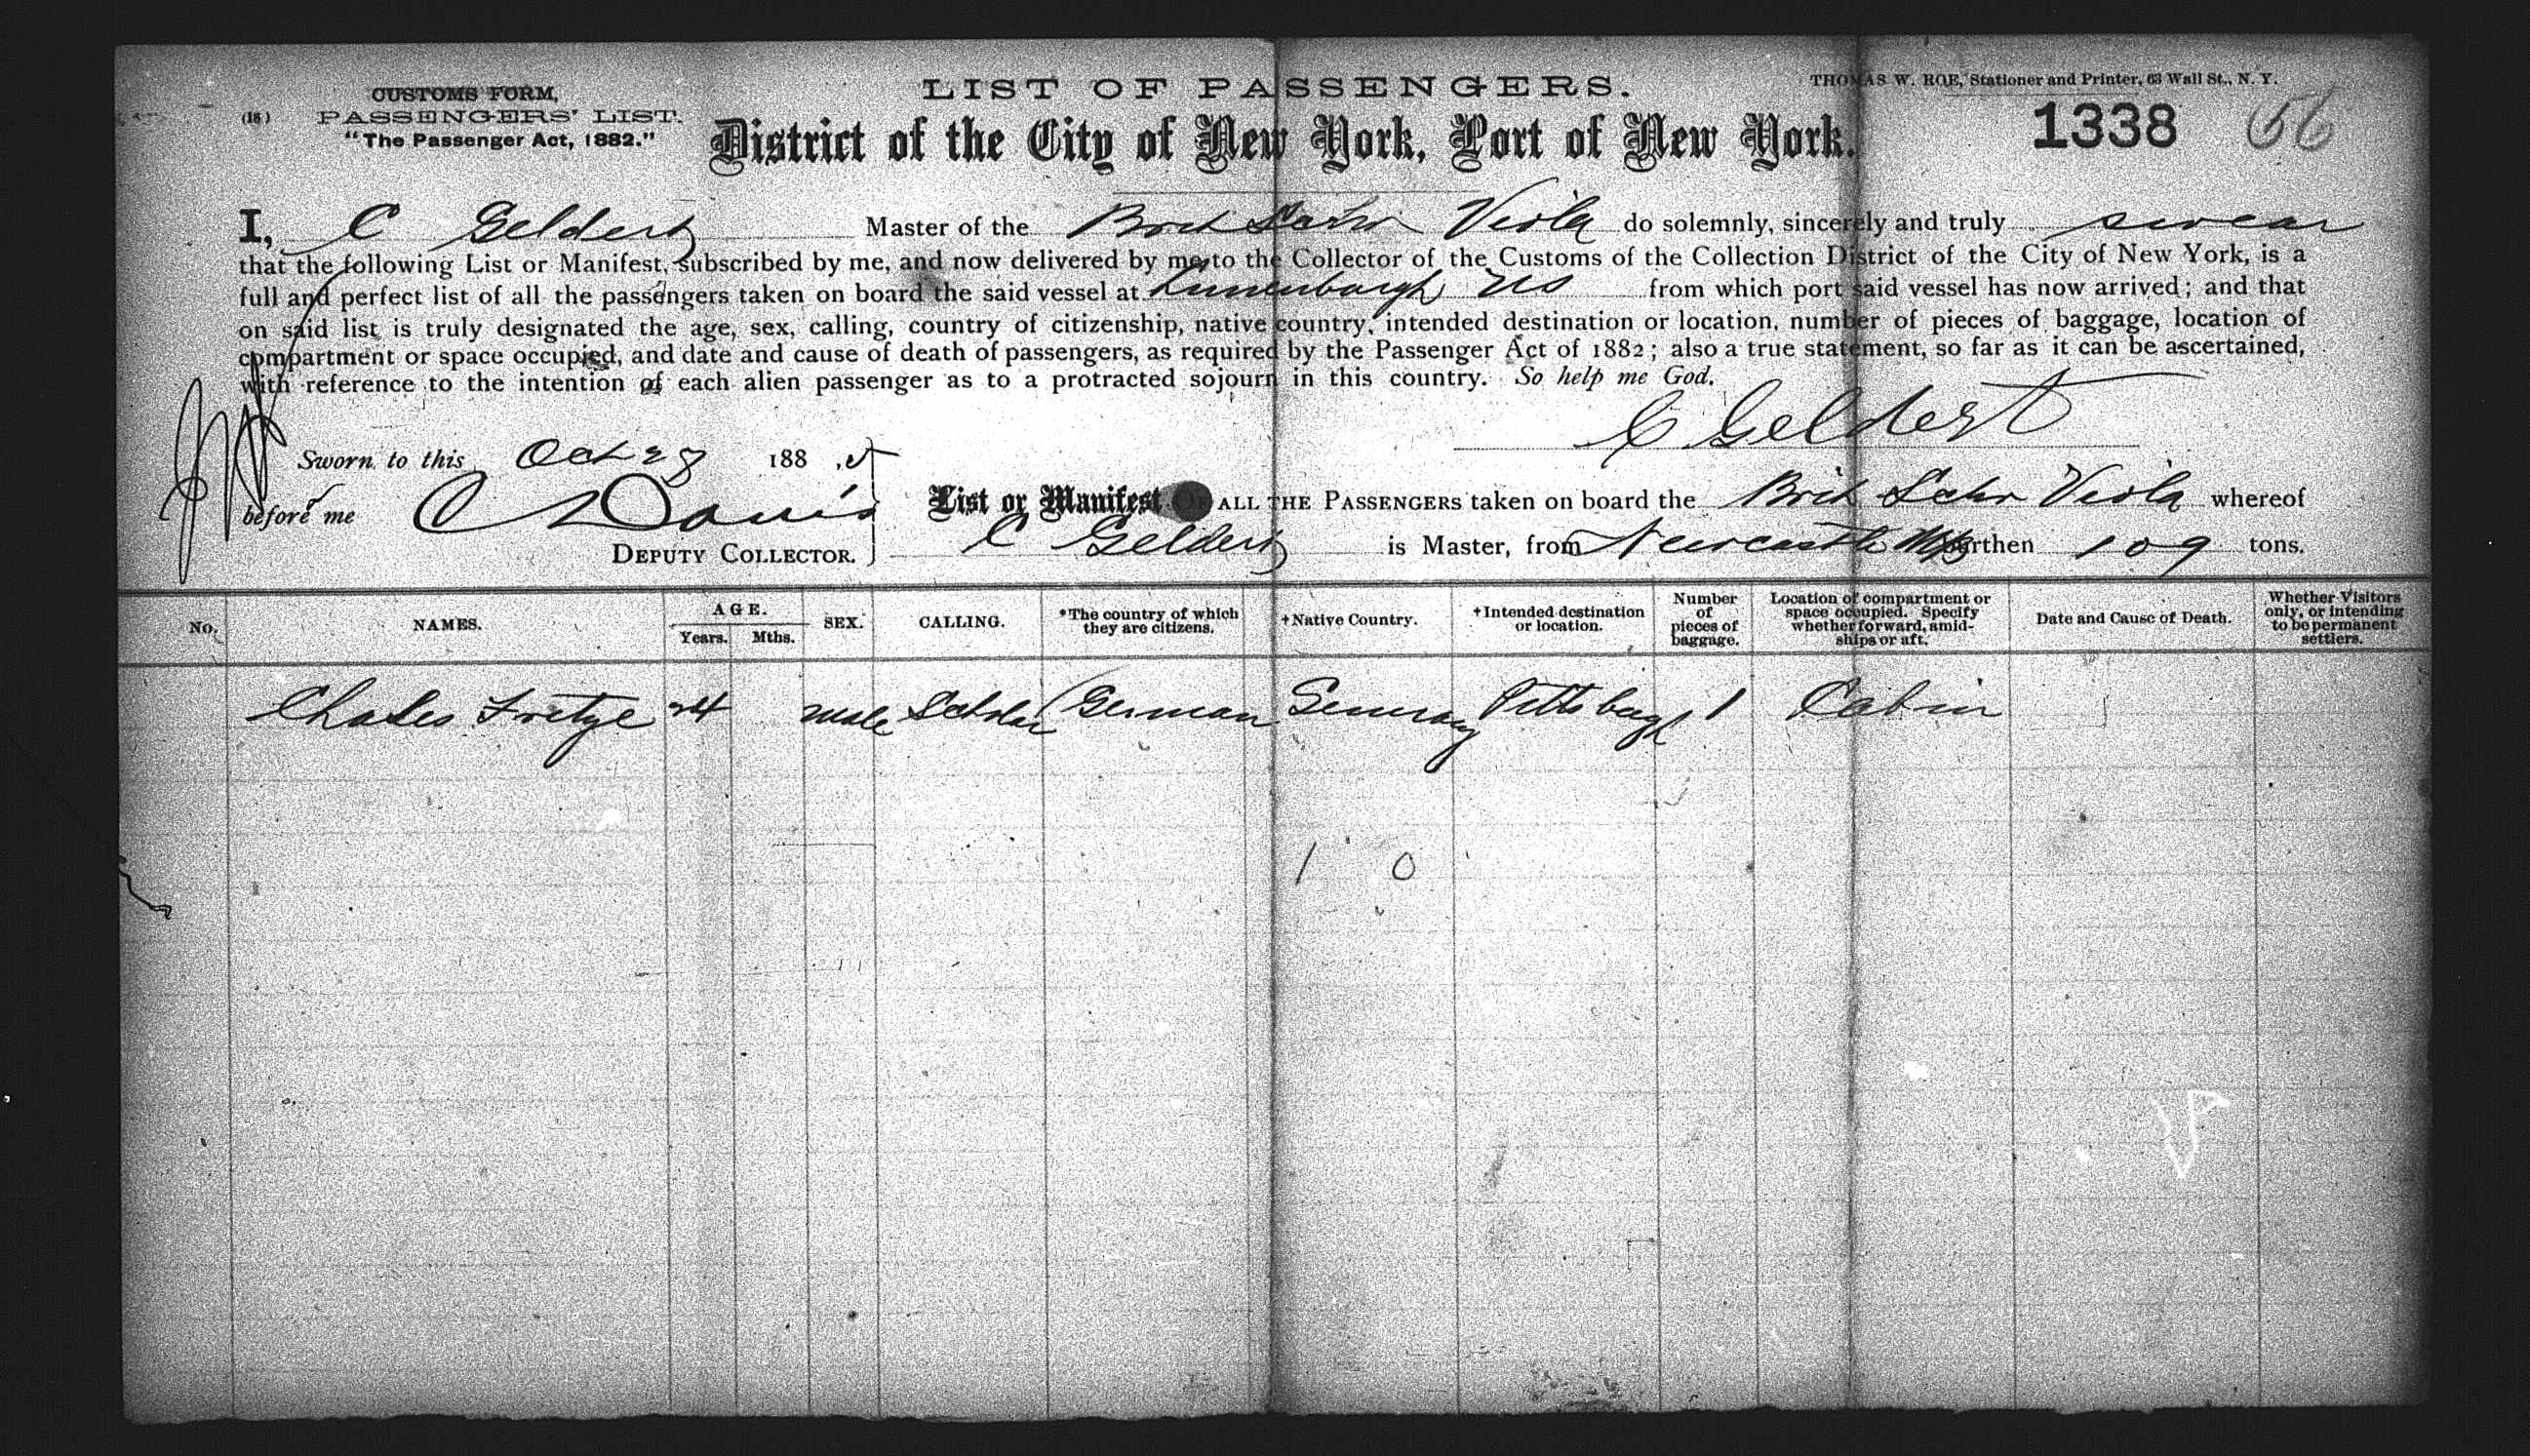 CUSTOMS FORM,
(18) PASSENGERS' LIST.
"The Passenger Act, 1882."
LIST OF PASSENGERS.
THOMAS W. ROE, Stationer and Printer, 63 Wall St., N. Y.
District of the City of New York, Port of New York.
1338 66
I, C Geldert Master of the Brit Schr Viola do solemnly, sincerely and truly swear
that the following List or Manifest, subscribed by me, and now delivered by me to the Collector of the Customs of the Collection District of the City of New York, is a
full and perfect list of all the passengers taken on board the said vessel at Lunenburgh NS from which port said vessel has now arrived; and that
on said list is truly designated the age, sex, calling, country of citizenship, native country, intended destination or location, number of pieces of baggage, location of
compartment or space occupied, and date and cause of death of passengers, as required by the Passenger Act of 1882; also a true statement, so far as it can be ascertained,
with reference to the intention of each alien passenger as to a protracted sojourn in this country. So help me God.
C Geldert
Sworn to this Oct 28 188
before me C Davis
DEPUTY COLLECTOR.
List or Manifest OF ALL THE PASSENGERS taken on board the Brit Schr Viola whereof
C Geldert is Master, from Newcastle burthen 109 tons.
No. NAMES. AGE. Years. Mths. SEX. CALLING. *The country of which they are citizens. +Native Country. +Intended destination or location. Number of pieces of baggage. Location of compartment or space occupied. Specify whether forward, amidships or aft. Date and Cause of Death. Whether Visitors only, or intending to be permanent settlers.
Chales Fretze 24 male Scholar German Germany Pittsburgh 1 Cabin
1 0